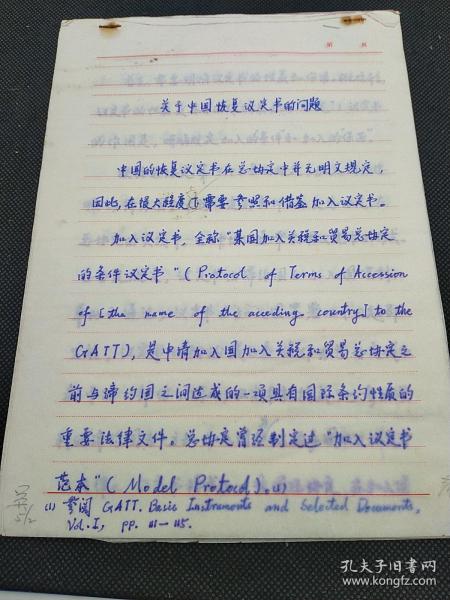 第 页
关于中国恢复议定书的问题
中国的恢复议定书在总协定中并无明文规定，
因此，在很大程度上需要参照和借鉴加入议定书。
加入议定书，全称“某国加入关税和贸易总协定
的条件议定书”（Protocol of Terms of Accession
of [the name of the acceding country] to the
GATT），是申请加入国加入关税和贸易总协定之
前与缔约国之间达成的一项具有国际条约性质的
重要法律文件。总协定曾经制定过“加入议定书
范本”（Model Protocol）。(1)
(1) 参阅 GATT. Basic Instruments and Selected Documents,
Vol.I, pp. 111—115.
孔夫子旧书网
www.kongfz.com